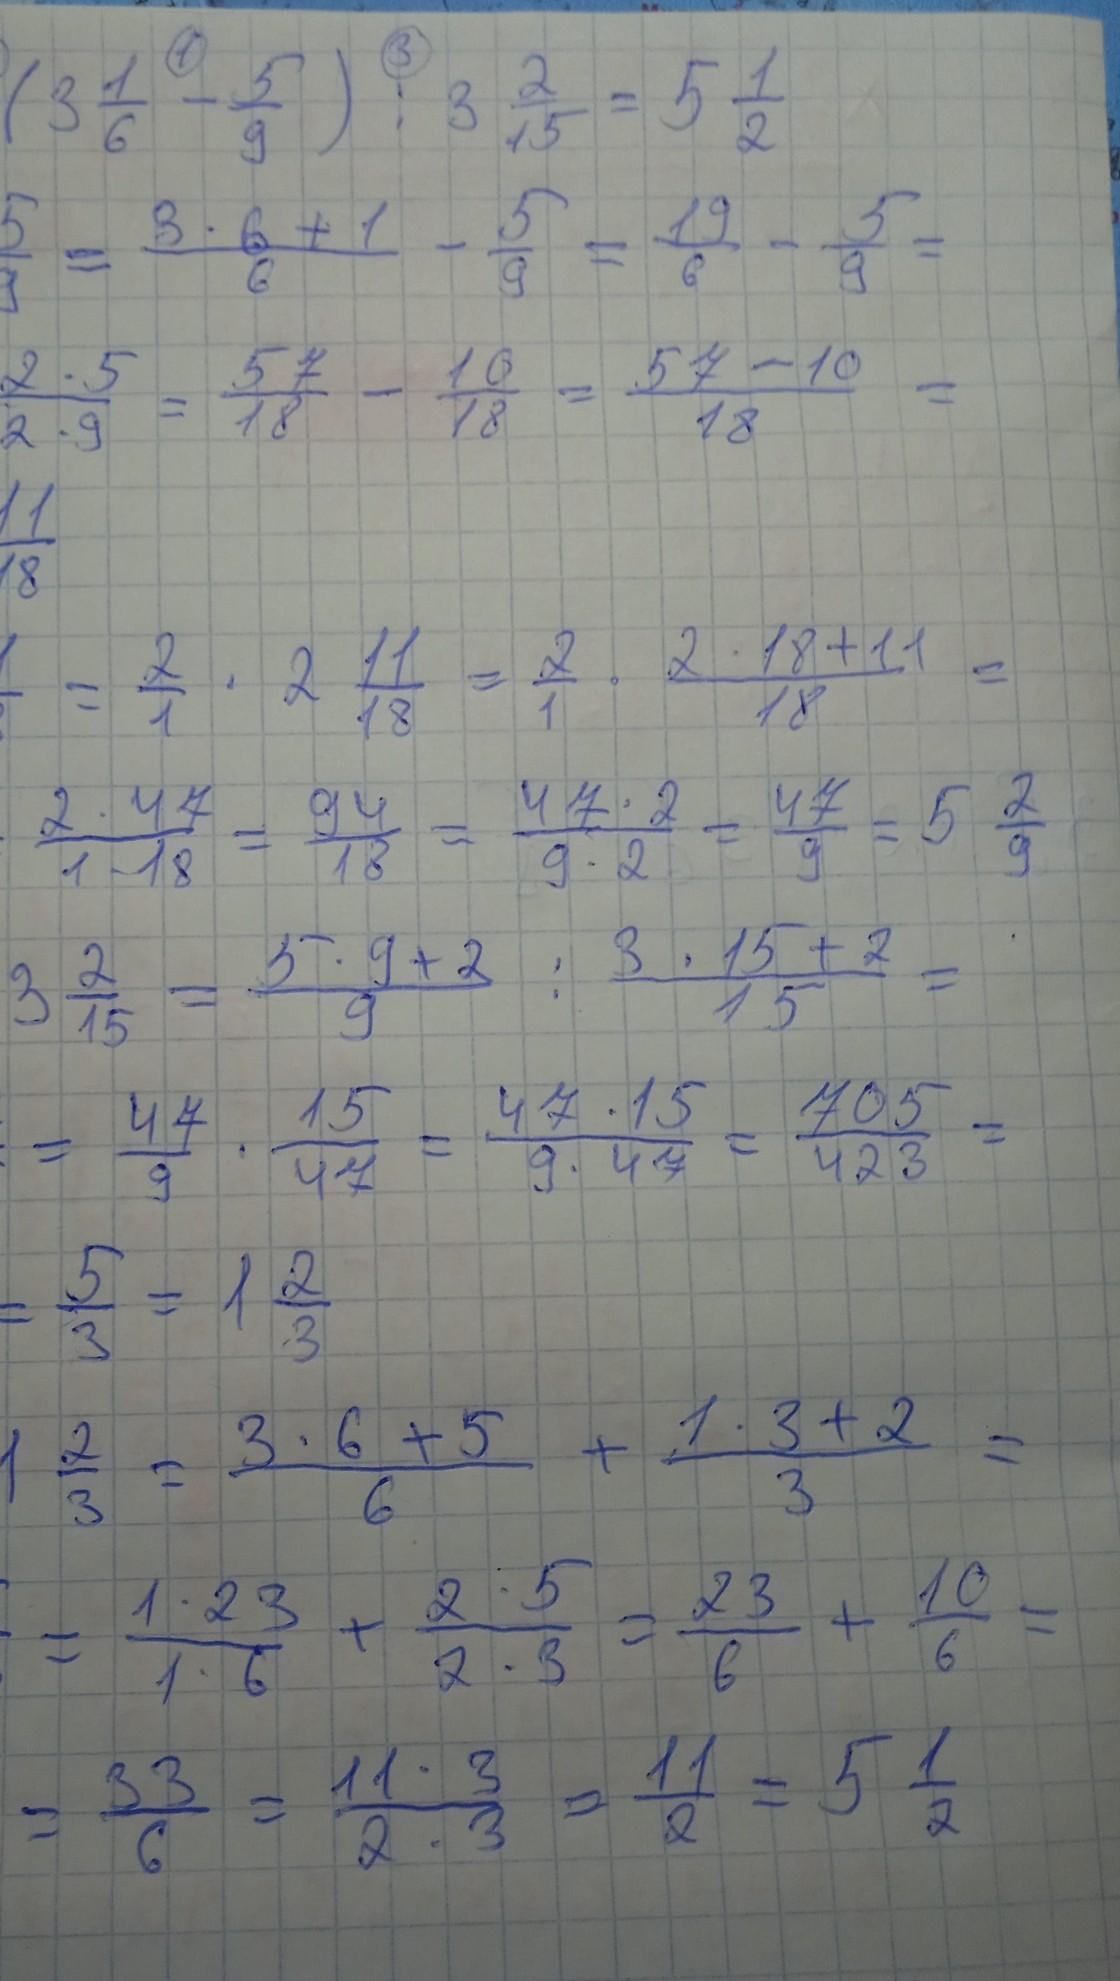 (3 1/6 - 5/9) : 3 2/15 = 5 1/2
① ③
5/9 = (3·6+1)/6 - 5/9 = 19/6 - 5/9 =
(2·5)/(2·9) = 57/18 - 10/18 = (57-10)/18 =
11/18
= 2/1 · 2 11/18 = 2/1 · (2·18+11)/18 =
(2·47)/(1·18) = 94/18 = (47·2)/(9·2) = 47/9 = 5 2/9
3 2/15 = (5·9+2)/9 : (3·15+2)/15 =
= 47/9 · 15/47 = (47·15)/(9·47) = 705/423 =
= 5/3 = 1 2/3
1 2/3 = (3·6+5)/6 + (1·3+2)/3 =
= (1·23)/(1·6) + (2·5)/(2·3) = 23/6 + 10/6 =
= 33/6 = (11·3)/(2·3) = 11/2 = 5 1/2